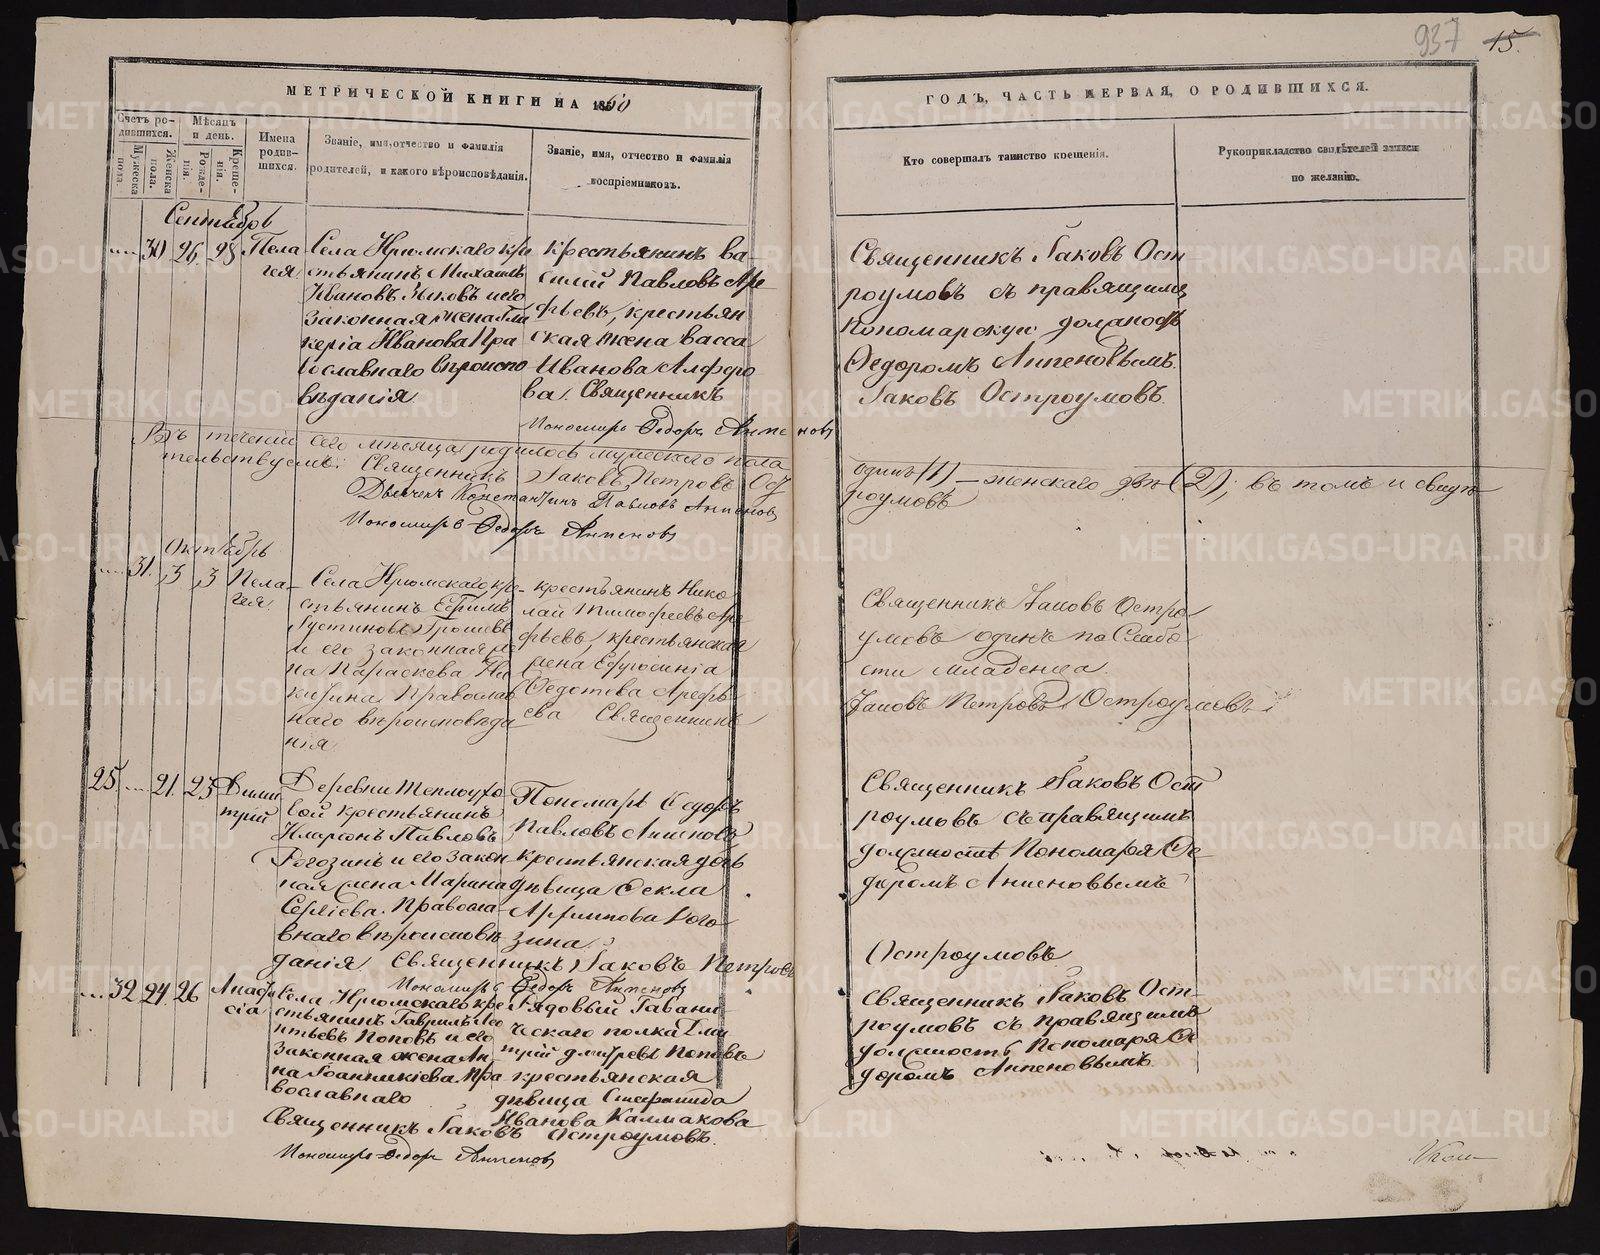 937 15.
МЕТРИЧЕСКОЙ КНИГИ НА 1860
ГОДЪ, ЧАСТЬ ПЕРВАЯ, О РОДИВШИХСЯ.
Счетъ родившихся.
Мужеска пола.
Женска пола.
Мѣсяцъ и день.
Рожденія.
Крещенія.
Имена родившихся.
Званіе, имя, отчество и фамилія
родителей, и какого вѣроисповѣданія.
Званіе, имя, отчество и фамилія
воспріемниковъ.
Кто совершалъ таинство крещенія.
Рукоприкладство свидѣтелей записи
по желанію.
Сентябрь
30 26 28 Пела
гея
Села Крюмскаго кре
стьянинъ Михаилъ
Ивановъ Зыковъ и его
законная жена Гли
керіа Иванова Пра
вославнаго вѣроиспо
вѣданія
крестьянинъ Ва-
силій Павловъ Аре
фьевъ, крестьян
ская жена Васса
Иванова Алферо
ва. Священникъ
Пономарь Ѳедоръ Анпеновъ
Священникъ Іаковъ Ост-
роумовъ съ правящимъ
Пономарскую должность
Ѳедоромъ Анпеновымъ.
Іаковъ Остроумовъ.
Въ теченіи сего мѣсяца родилось мужескаго пола
одинъ (1) – женскаго двѣ (2), въ томъ и свидѣ
тельствуемъ: Священникъ Іаковъ Петровъ Ост
роумовъ
Дьячекъ Константинъ Павловъ Анпеновъ
Пономарь Ѳедоръ Анпеновъ
Октябрь
31. 3 3 Пела-
гея
Села Крюмскаго кре-
стьянинъ Ефимъ
Іустиновъ
и его законная же
на Параскева Ни
китина Православ
наго вѣроисповѣда
нія
крестьянинъ Нико
лай Тимофеевъ Аре
фьевъ, крестьянская
жена Ефросинія
Ѳедотова Арефь
ева Священникъ
Священникъ Іаковъ Остро
умовъ одинъ по слабо
сти младенца.
Іаковъ Петровъ Остроумовъ
25. 21. 23 Дими
трій
Деревни Теплоухо
вой крестьянинъ
Иларіонъ Павловъ
Рогозинъ и его закон
ная жена Марина
Сергіева. Правосла
внаго вѣроисповѣ
данія
Пономарь Ѳедоръ
Павловъ Анпеновъ
крестьянская дочь
дѣвица Ѳекла
Рого
зина.
Священникъ Іаковъ Петровъ
Остроумовъ
Пономарь Ѳедоръ Анпеновъ
Священникъ Іаковъ Ост
роумовъ съ правящимъ
должность Пономаря Ѳе
доромъ Анпеновымъ
32 24. 26 Анаста
сіа
Села Крюмскаго кре
стьянинъ Гавріилъ Лео
нтьевъ Поповъ и его
законная жена Ан-
на Іоанникіева Пра
вославнаго
Рядовый
ческаго полка Дми
трій Дмитріевъ Поповъ
крестьянская
дѣвица Стефанида
Иванова Калмакова
Священникъ Іаковъ Остроумовъ.
Пономарь Ѳедоръ Анпеновъ
Священникъ Іаковъ Ост-
роумовъ съ правящимъ
должность Пономаря Ѳе
доромъ Анпеновымъ.
METRIKI.GASO-URAL.RU